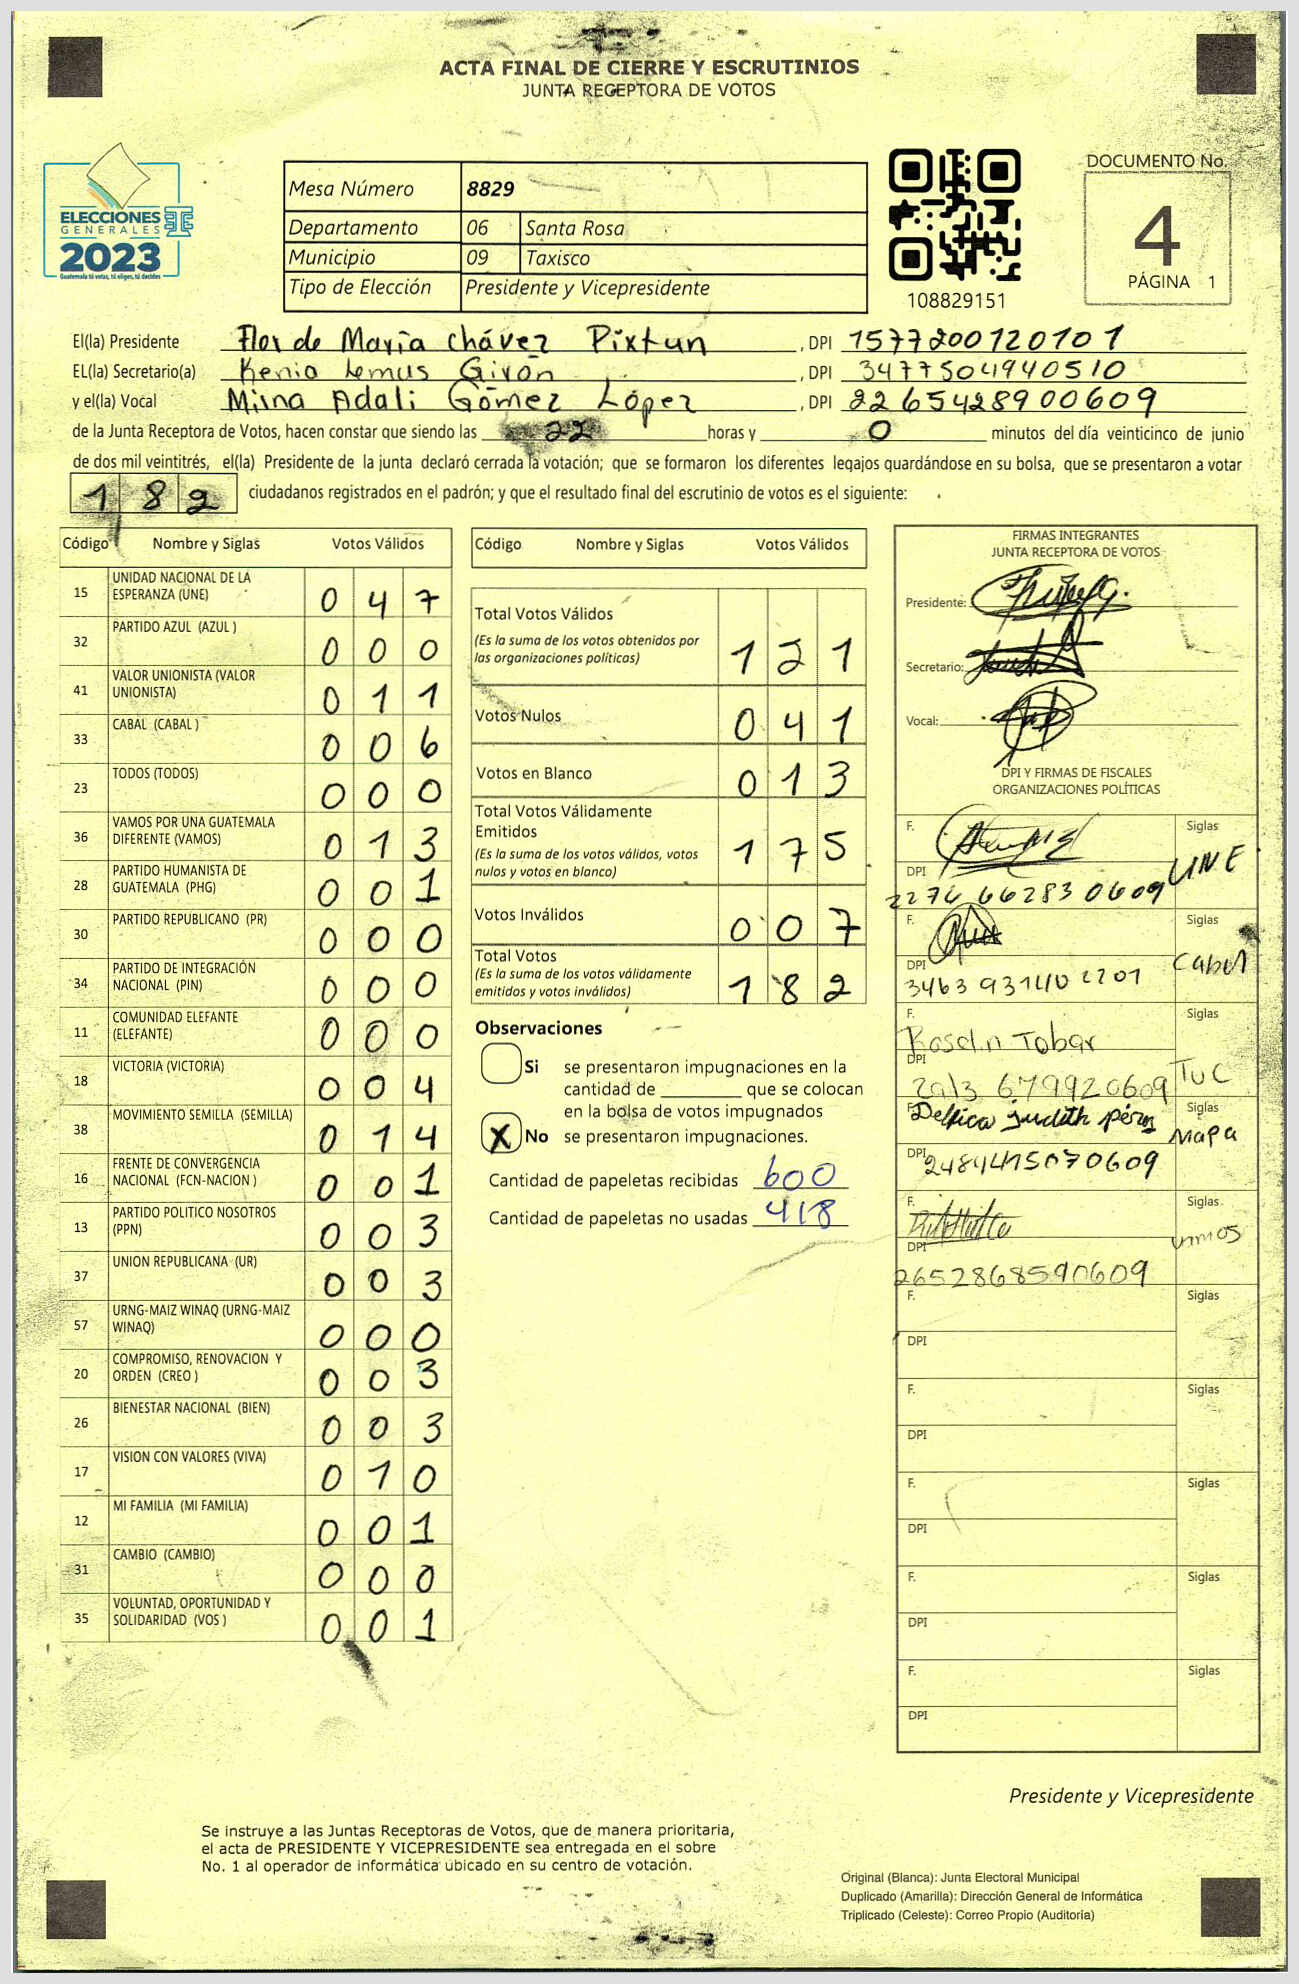 ACTA FINAL DE CIERRE Y ESCRUTINIOS
JUNTA RECEPTORA DE VOTOS
ELECCIONES
GENERALES
2023
Guatemala tú votas, tú eliges, tú decides
Mesa Número 8829
Departamento 06 Santa Rosa
Municipio 09 Taxisco
Tipo de Elección Presidente y Vicepresidente
108829151
DOCUMENTO No.
4
PÁGINA 1
El(la) Presidente Flor de María Chávez Pixtun, DPI 1577200120101
EL(la) Secretario(a) Kenia Lemus Girón, DPI 3477504940510
y el(la) Vocal Mirna Adali Gómez López, DPI 2265428900609
de la Junta Receptora de Votos, hacen constar que siendo las 22 horas y 0 minutos del día veinticinco de junio
de dos mil veintitrés, el(la) Presidente de la junta declaró cerrada la votación; que se formaron los diferentes legajos guardándose en su bolsa, que se presentaron a votar
182 ciudadanos registrados en el padrón; y que el resultado final del escrutinio de votos es el siguiente:
Código Nombre y Siglas Votos Válidos
15 UNIDAD NACIONAL DE LA ESPERANZA (UNE) 0 4 7
32 PARTIDO AZUL (AZUL ) 0 0 0
41 VALOR UNIONISTA (VALOR UNIONISTA) 0 1 1
33 CABAL (CABAL ) 0 0 6
23 TODOS (TODOS) 0 0 0
36 VAMOS POR UNA GUATEMALA DIFERENTE (VAMOS) 0 1 3
28 PARTIDO HUMANISTA DE GUATEMALA (PHG) 0 0 1
30 PARTIDO REPUBLICANO (PR) 0 0 0
34 PARTIDO DE INTEGRACIÓN NACIONAL (PIN) 0 0 0
11 COMUNIDAD ELEFANTE (ELEFANTE) 0 0 0
18 VICTORIA (VICTORIA) 0 0 4
38 MOVIMIENTO SEMILLA (SEMILLA) 0 1 4
16 FRENTE DE CONVERGENCIA NACIONAL (FCN-NACION ) 0 0 1
13 PARTIDO POLITICO NOSOTROS (PPN) 0 0 3
37 UNION REPUBLICANA (UR) 0 0 3
57 URNG-MAIZ WINAQ (URNG-MAIZ WINAQ) 0 0 0
20 COMPROMISO, RENOVACION Y ORDEN (CREO ) 0 0 3
26 BIENESTAR NACIONAL (BIEN) 0 0 3
17 VISION CON VALORES (VIVA) 0 1 0
12 MI FAMILIA (MI FAMILIA) 0 0 1
31 CAMBIO (CAMBIO) 0 0 0
35 VOLUNTAD, OPORTUNIDAD Y SOLIDARIDAD (VOS ) 0 0 1
Código Nombre y Siglas Votos Válidos
Total Votos Válidos
(Es la suma de los votos obtenidos por
las organizaciones políticas) 1 2 1
Votos Nulos 0 4 1
Votos en Blanco 0 1 3
Total Votos Válidamente
Emitidos
(Es la suma de los votos válidos, votos
nulos y votos en blanco) 1 7 5
Votos Inválidos 0 0 7
Total Votos
(Es la suma de los votos válidamente
emitidos y votos inválidos) 1 8 2
Observaciones
Si se presentaron impugnaciones en la
cantidad de ________ que se colocan
en la bolsa de votos impugnados
X No se presentaron impugnaciones.
Cantidad de papeletas recibidas 600
Cantidad de papeletas no usadas 418
FIRMAS INTEGRANTES
JUNTA RECEPTORA DE VOTOS
Presidente:
Secretario:
Vocal:
DPI Y FIRMAS DE FISCALES
ORGANIZACIONES POLÍTICAS
F. Siglas
DPI UNE
2274662830609
F. Siglas
DPI Cabal
F. Siglas
Roselin Tobar
DPI TUC
F. Siglas
Delfica Judith pérez
Mapa
DPI
F. Siglas
vamos
DPI
2652868590609
F. Siglas
DPI
F. Siglas
DPI
F. Siglas
DPI
F. Siglas
DPI
F. Siglas
DPI
Presidente y Vicepresidente
Se instruye a las Juntas Receptoras de Votos, que de manera prioritaria,
el acta de PRESIDENTE Y VICEPRESIDENTE sea entregada en el sobre
No. 1 al operador de informática ubicado en su centro de votación.
Original (Blanca): Junta Electoral Municipal
Duplicado (Amarilla): Dirección General de Informática
Triplicado (Celeste): Correo Propio (Auditoría)